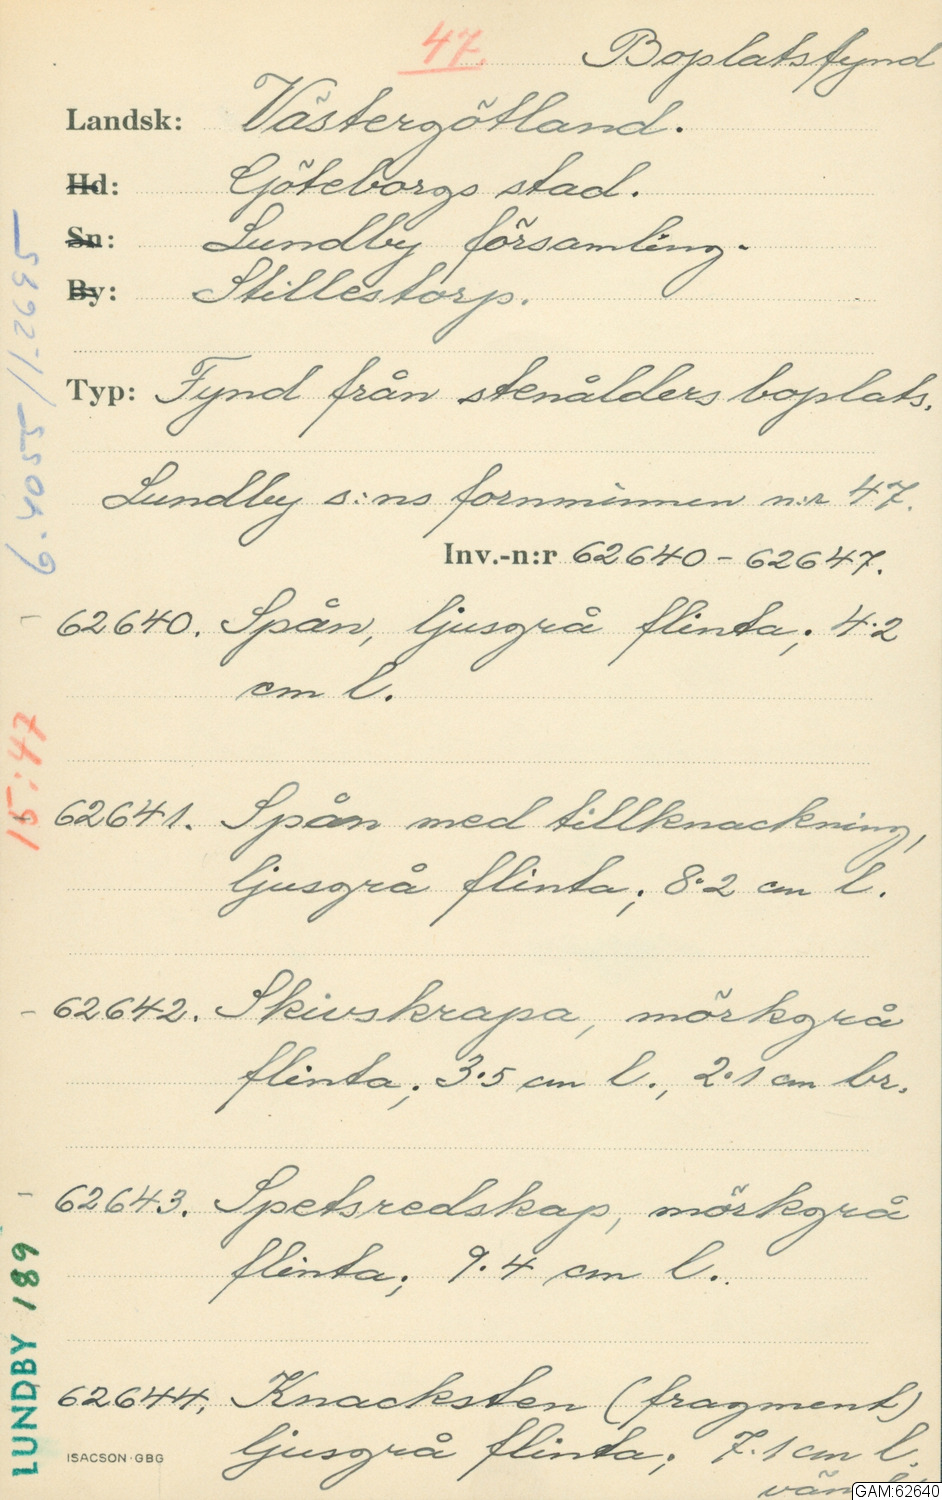 47.
Boplatsfynd
Landsk: Västergötland.
Hd: Göteborgs stad.
Sn: Lundby församling.
By: Stillestorp.
Typ: Fynd från stenålders boplats.
Lundby s:ns fornminnen n:r 47.
Inv.-n:r 62640 - 62647.
62640. Spån, ljusgrå flinta; 4.2
cm l.
62641. Spån med tillknackning,
ljusgrå flinta; 8.2 cm l.
62642. Skivskrapa, mörkgrå
flinta; 3.5 cm l., 2.1 cm br.
62643. Spetsredskap, mörkgrå
flinta; 9.4 cm l.
62644. Knacksten (fragment)
ljusgrå flinta; 7.1 cm l.
ISACSON·GBG
GAM:62640
15:47
LUNDBY 189